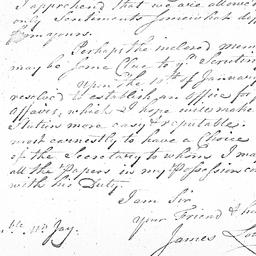 I apprehend that we are allowed
only Sentiments somewhat dif
from yours.
Perhaps the inclosed mem
may be some Clue to yr. Scrutin
Upon the 10th of January
resolved to establish an office for
affairs, which I hope will make
Stution more easy & reputable.
most earnestly to have a Choice
of the Secretary to whom I ma
all the Papers in my Possession con
with his Duty.
I am Sir
your Friend & h
ble. Mr. Jay.
James Lov